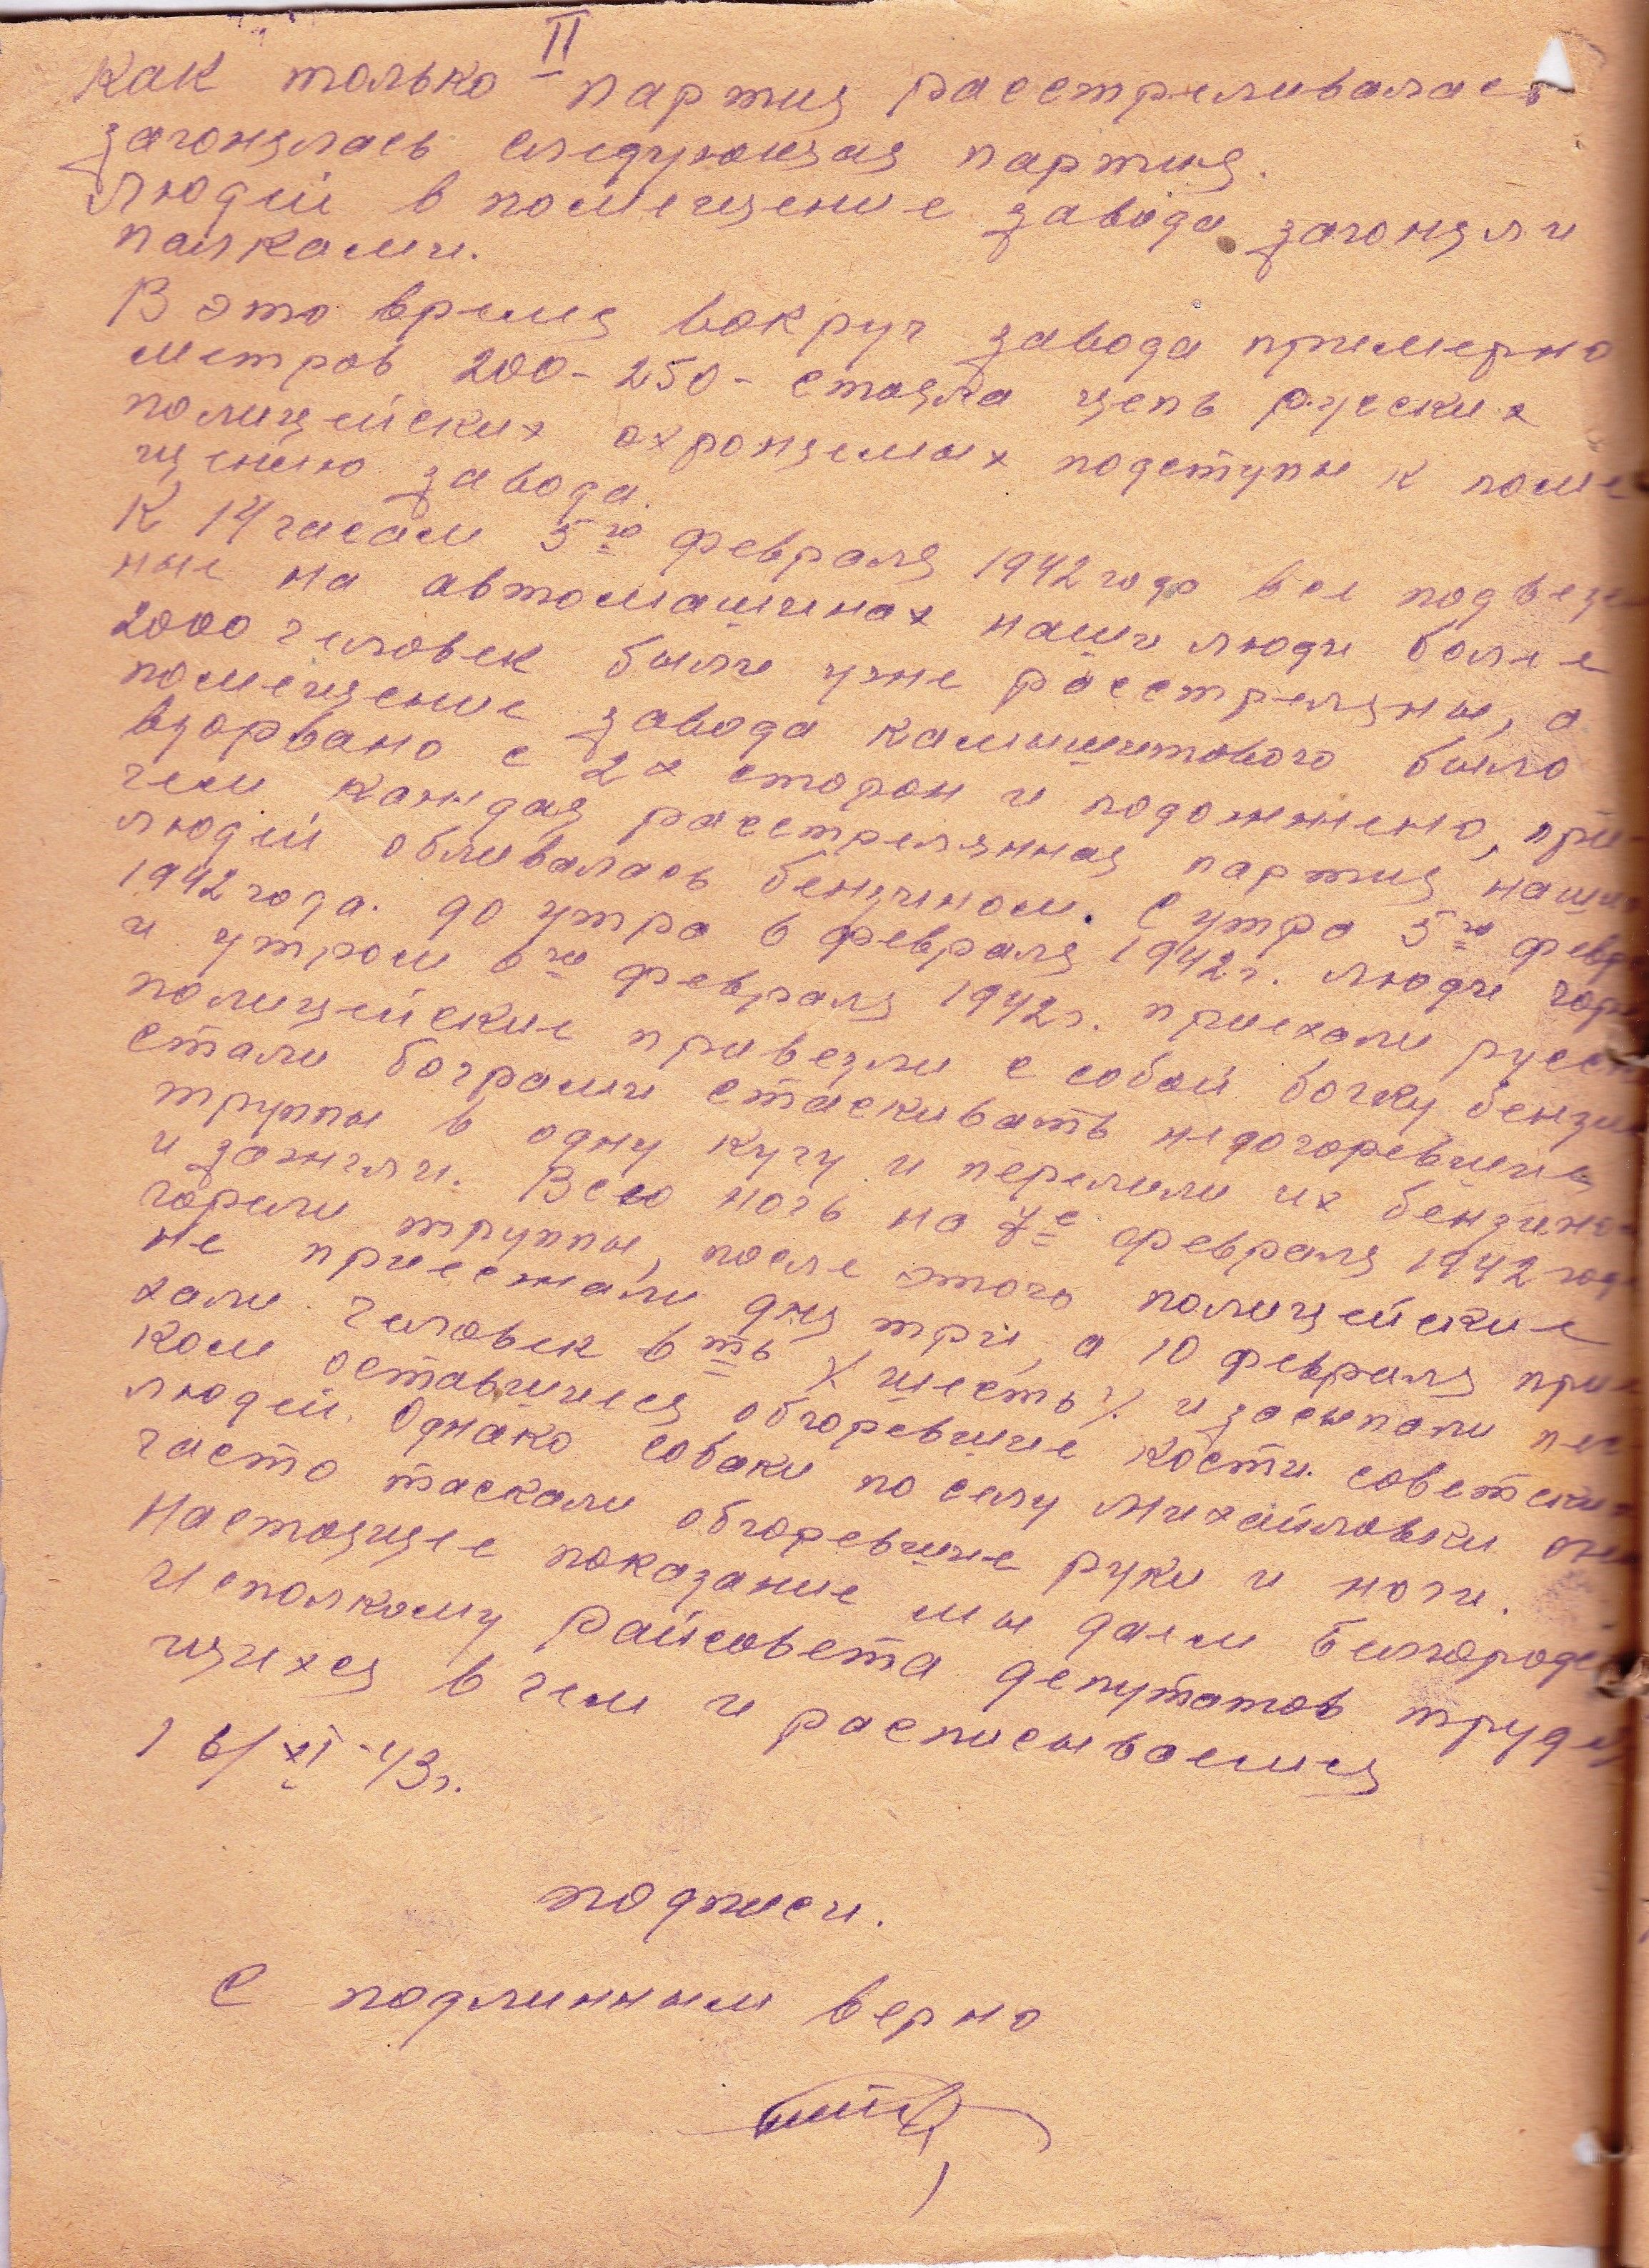 II
Как только партия расстреливалась
загонялась следующая партия.
Людей в помещение завода загоняли
палками.
В это время вокруг завода примерно
метров 200-250- стояла цепь русских
полицейских охроняемых подступы к поме
щению завода.
К 14 часам 5го февраля 1942 года все подвезен
ные на автомашинах наши люди более
2000 человек были уже расстреляны, а
помещение завода камышитового было
взорвано с 2х сторон и подожжено, при-
чем каждая расстрелянная партия наших
людей обливалась бензином. С утра 5го февр
1942 года. до утра 6 февраля 1942 г. люди горе
и утром 6го февраля 1942 г. приехали русск
полицейские привезли с собой бочку бензин
стали баграми стаскивать недогоревшие
труппы в одну кучу и перелили их бензино
и зажгли. Всю ночь на 7е февраля 1942 года
горели труппы, после этого полицейские
не приезжали дня три, а 10 февраля прие
хали человек 6ть /шесть/ и засыпали пес
ком оставшиеся обгоревшие кости советских
людей. Однако собаки по селу Михайловки
часто таскали обгоревшие руки и ноги.
Настоящее показание мы даем Белгородс
Исполкому Райсовета депутатов трудя
щихся в чем и расписываемся
16/XI-43г.
подписи.
С подлинным верно